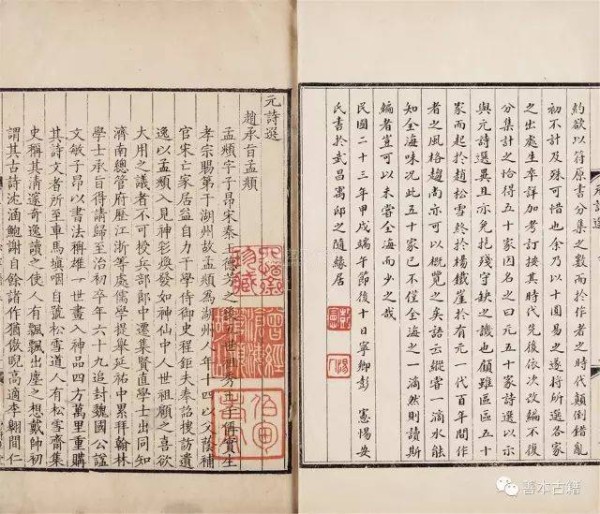 約欲以符原書分集之數而於作者之時代顛倒錯亂
初不計及殊可惜也余乃以十圓易之遂將所選各家
之出處生卒詳加考訂挨其時代先後依次改編不復
分集計之恰得五十家因名之曰元五十家詩選以示
與元詩選異且亦免抱殘守缺之譏也顧雖區區五十
家而起於趙松雪終於楊鐵崖於有元一代百年間作
者之風格趨尚亦可以概覽之矣語云縱嘗一滴水能
知全海味况此五十家已不僅全海之一滴然則讀斯
編者豈可以未嘗全海而少之哉
民國二十三年甲戌端午節後十日寧鄉彭憲惕安
氏書於武昌寓邸之隨緣居
元詩選
趙承旨孟頫
孟頫字子昂宋秦王德芳之後五世祖秀王子偁實生
孝宗賜第于湖州故孟頫為湖州人年十四以父蔭補
官宋亡家居益自力于學侍御史程鉅夫奉詔搜訪遺
逸以孟頫入見神彩煥發如神仙中人世祖顧之喜欲
大用之議者不可授兵部郎中遷集賢直學士出同知
濟南總管府歷江浙等處儒學提舉延祐中累拜翰林
學士承旨得請歸至治初卒年六十九追封魏國公謚
文敏子昂以書法稱雄一世畫入神品四方萬里重購
其詩文者所至車馬填咽自號松雪道人有松雪齋集
史稱其清邃奇逸讀之使人有飄飄出塵之想戴帥初
謂其古詩沈涵鮑謝自餘諸作猶傲睨高適李翱間仁
曾經滄海
善本古籍